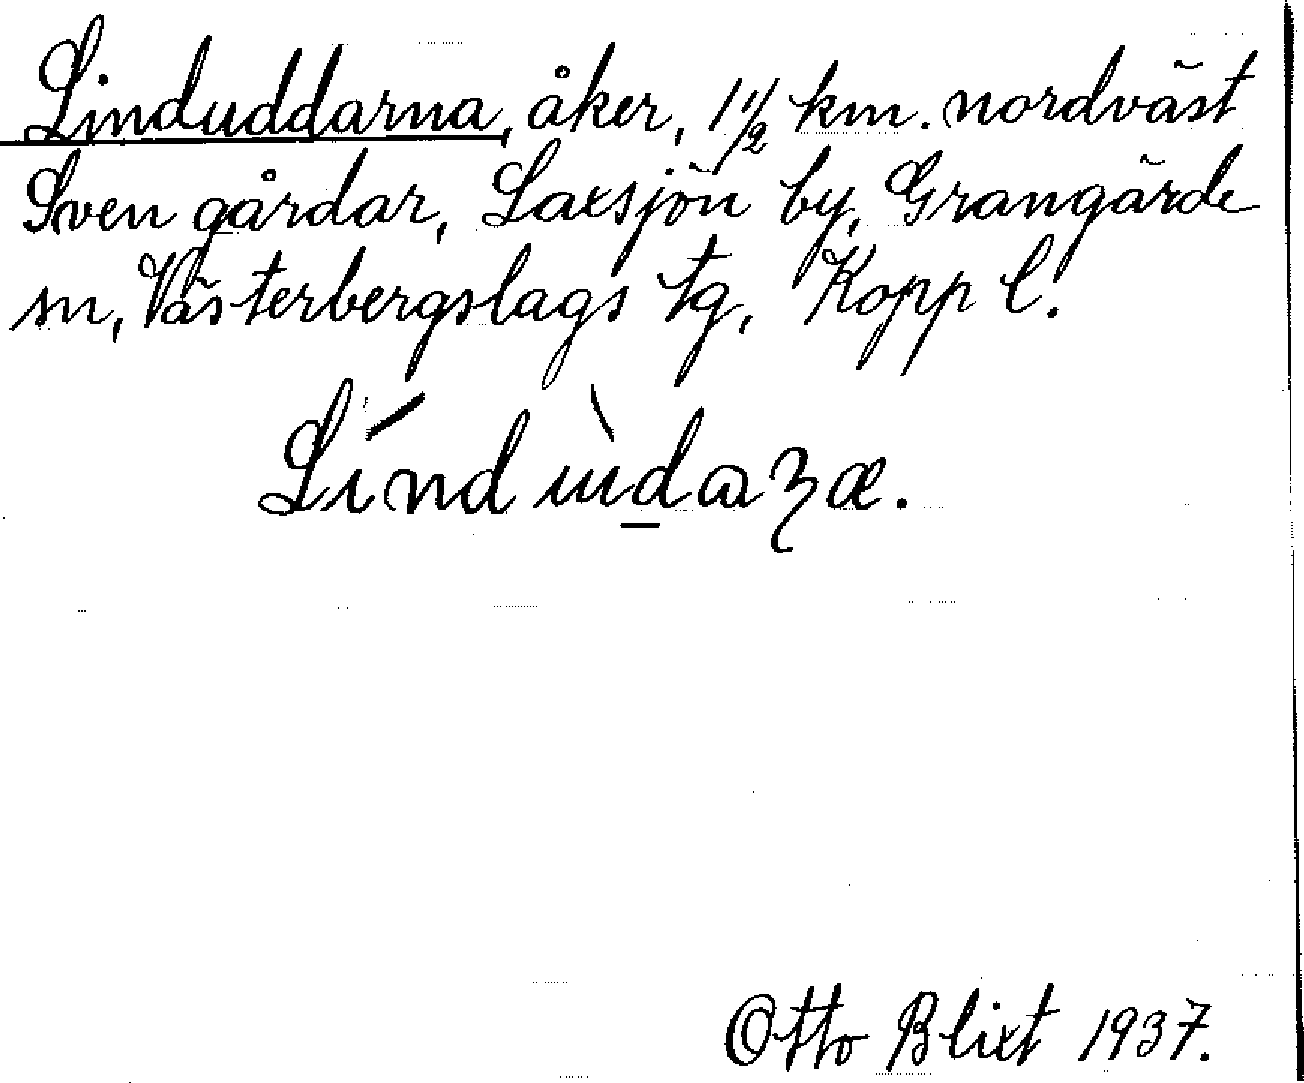 Linduddarna, åker, 1 1/2 km. nordväst
Sven gårdar, Laxsjön by, Grangärde
sn, Västerbergslags tg, Kopp l.
Otto Blixt 1937.